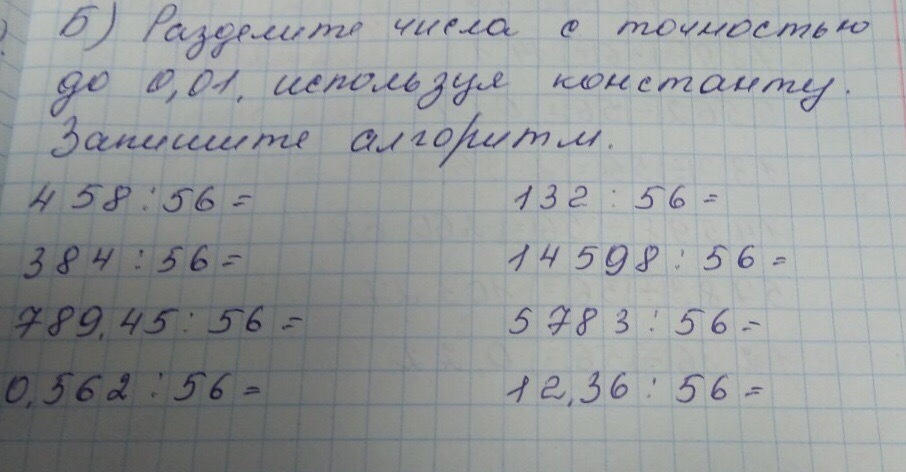 Б) Разделите числа с точностью
до 0,01, используя константу.
Запишите алгоритм.
458:56= 132:56=
384:56= 14598:56=
789,45:56= 5783:56=
0,562:56= 12,36:56=